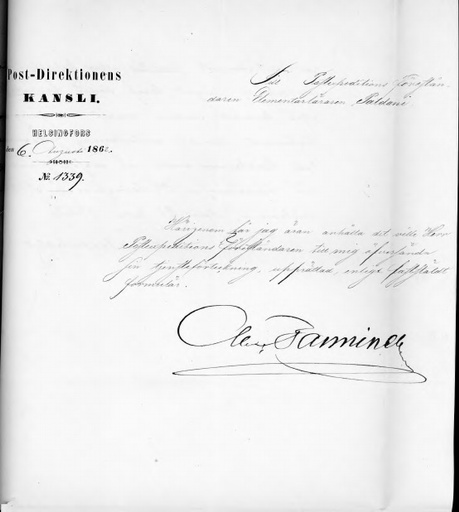 Post-Direktionens
KANSLI.
HELSINGFORS
den 6 Augusti 1862.
No. 1339.
Till Postexpeditions Förestån-
daren Elementarläraren Paldani
Härigenom får jag äran anhålla det ville Herr
Postexpeditions Föreståndaren till mig öfversända
sin tjensteförteckning, upprättad enligt fastställdt
formulär.
Alex